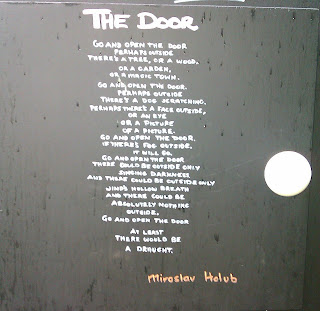 THE DOOR
GO AND OPEN THE DOOR
PERHAPS OUTSIDE
THERE'S A TREE, OR A WOOD.
OR A GARDEN,
OR A MAGIC TOWN.
GO AND OPEN THE DOOR.
PERHAPS OUTSIDE
THERE'S A DOG SCRATCHING.
PERHAPS THERE'S A FACE OUTSIDE,
OR AN EYE
OR A PICTURE
OF A PICTURE.
GO AND OPEN THE DOOR.
IF THERE'S FOG OUTSIDE,
IT WILL GO.
GO AND OPEN THE DOOR
THERE COULD BE OUTSIDE ONLY
SINGING DARKNESS,
AND THERE COULD BE OUTSIDE ONLY
WIND'S HOLLOW BREATH
AND THERE COULD BE
ABSOLUTELY NOTHING
OUTSIDE,
GO AND OPEN THE DOOR
AT LEAST
THERE WOULD BE
A DRAUGHT.
Miroslav Holub